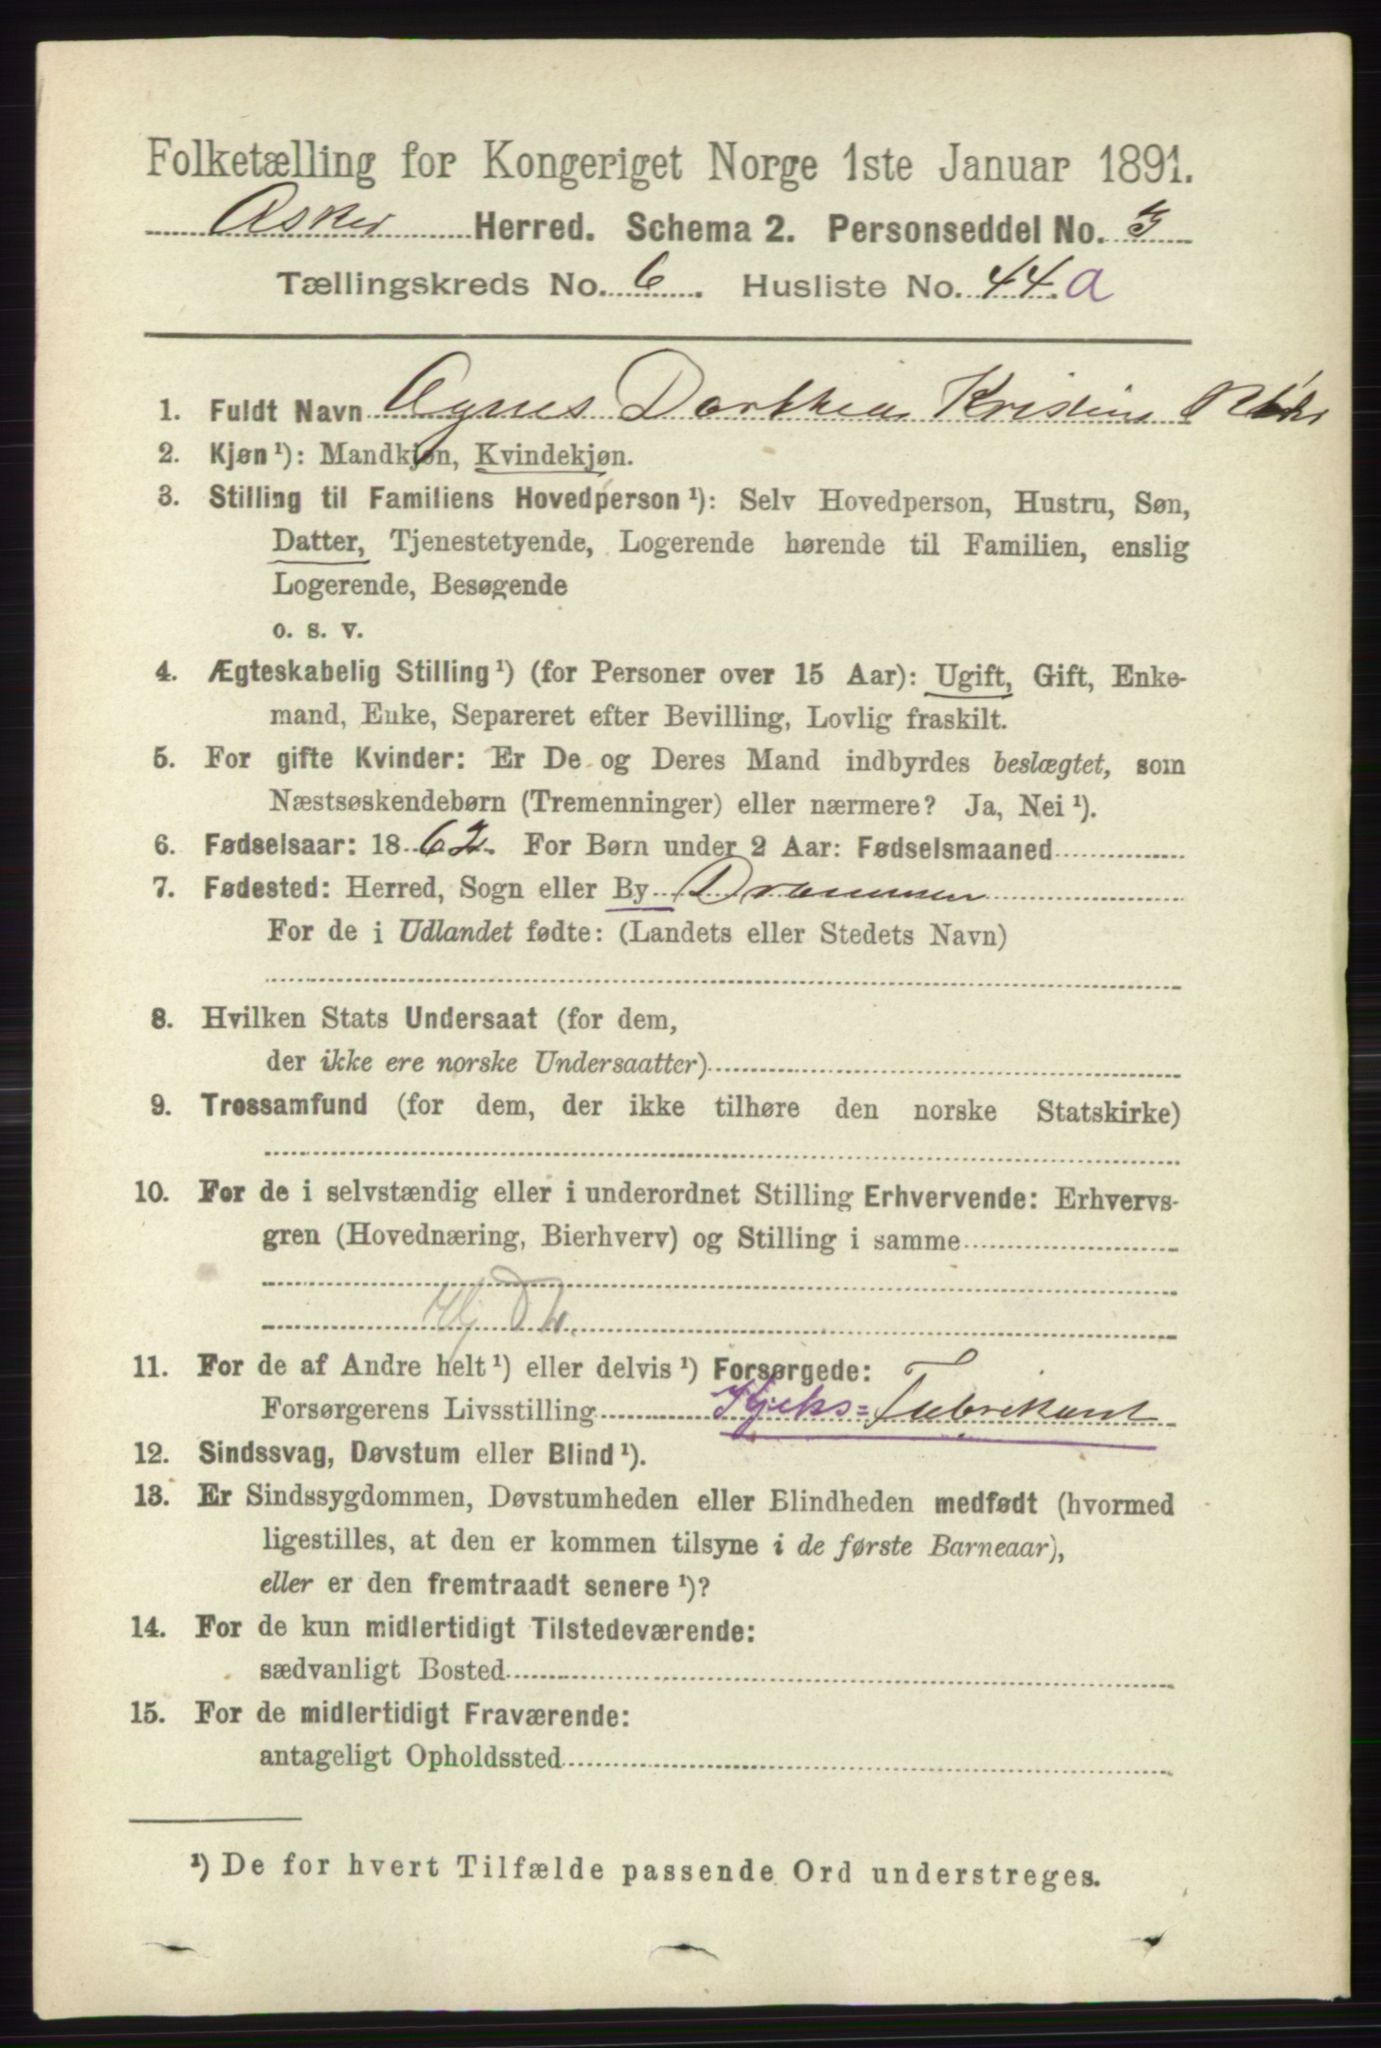 Folketælling for Kongeriget Norge 1ste Januar 1891.
Asker Herred. Schema 2. Personseddel No. 5
Tællingskreds No. 6. Husliste No. 44.a
1. Fuldt Navn Agnes Dorthea Kristine
2. Kjøn¹): Mandkjøn, Kvindekjøn.
3. Stilling til Familiens Hovedperson¹): Selv Hovedperson, Hustru, Søn,
Datter, Tjenestetyende, Logerende hørende til Familien, enslig
Logerende, Besøgende
o. s. v.
4. Ægteskabelig Stilling¹) (for Personer over 15 Aar): Ugift, Gift, Enke-
mand, Enke, Separeret efter Bevilling, Lovlig fraskilt.
5. For gifte Kvinder: Er De og Deres Mand indbyrdes beslægtet, som
Næstsøskendebørn (Tremenninger) eller nærmere? Ja, Nei¹).
6. Fødselsaar: 1862. For Børn under 2 Aar: Fødselsmaaned
7. Fødested: Herred, Sogn eller By Drammen
For de i Udlandet fødte: (Landets eller Stedets Navn)
8. Hvilken Stats Undersaat (for dem,
der ikke ere norske Undersaatter)
9. Trossamfund (for dem, der ikke tilhøre den norske Statskirke)
10. For de i selvstændig eller i underordnet Stilling Erhvervende: Erhvervs-
gren (Hovednæring, Bierhverv) og Stilling i samme
11. For de af Andre helt¹) eller delvis¹) Forsørgede:
Forsørgerens Livsstilling Kjeks=Fabrikant
12. Sindssvag, Døvstum eller Blind¹).
13. Er Sindssygdommen, Døvstumheden eller Blindheden medfødt (hvormed
ligestilles, at den er kommen tilsyne i de første Barneaar),
eller er den fremtraadt senere¹)?
14. For de kun midlertidigt Tilstedeværende:
sædvanligt Bosted
15. For de midlertidigt Fraværende:
antageligt Opholdssted
¹) De for hvert Tilfælde passende Ord understreges.